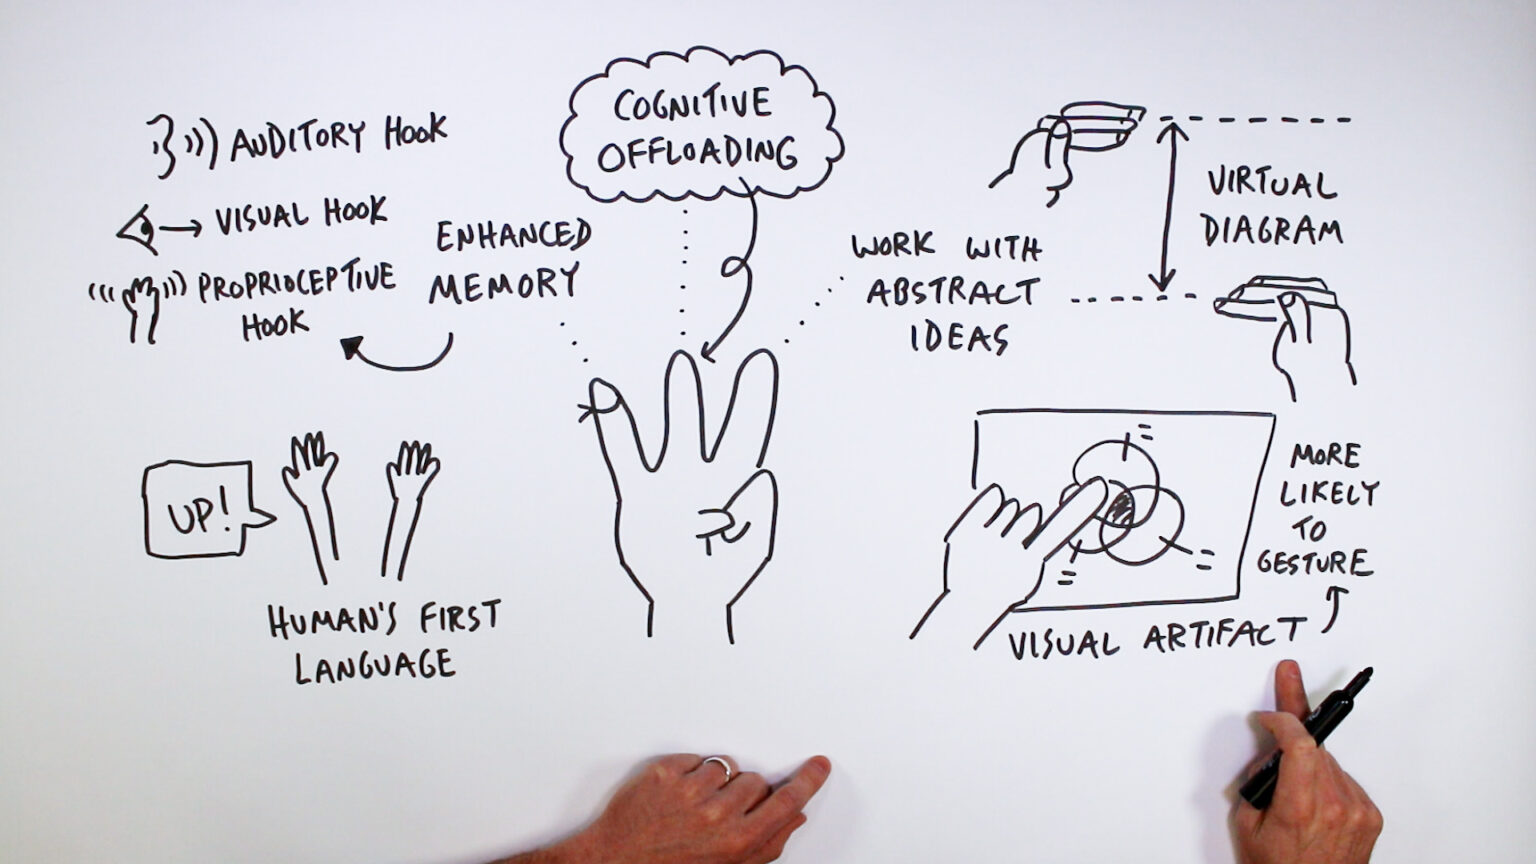 AUDITORY HOOK
VISUAL HOOK
PROPRIOCEPTIVE
HOOK
ENHANCED
MEMORY
COGNITIVE
OFFLOADING
WORK WITH
ABSTRACT
IDEAS
VIRTUAL
DIAGRAM
UP!
HUMAN'S FIRST
LANGUAGE
MORE
LIKELY
TO
GESTURE
VISUAL ARTIFACT